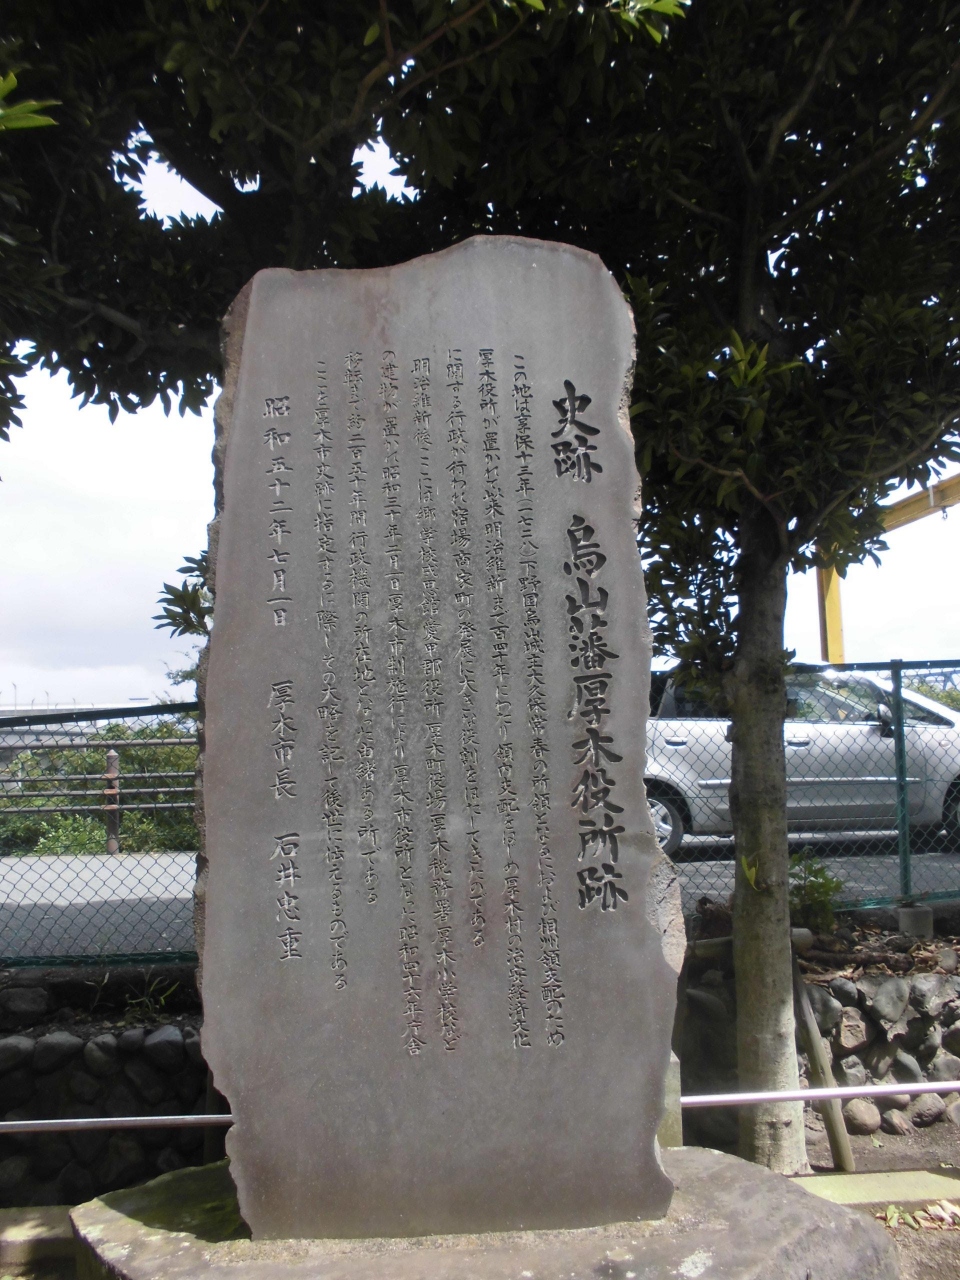 史跡 烏山藩厚木役所跡
この地は享保十三年(一七二八)下野国烏山城主大久保常春の所領となるにおよび相州領支配のため
厚木役所が置かれて以来明治維新まで百四十年にわたり領内支配をはじめ厚木村の治安経済文化
に関する行政が行われ宿場商家町の発展に大きな役割をはたしてきたのである
明治維新後ここには郷学校成思館愛甲郡役所厚木町役場厚木税務署厚木小学校など
の建物が置かれ昭和三十年二月一日厚木市制施行により厚木市役所となり昭和四十六年庁舎
移転まで約二百五十年間行政機関の所在地となった由緒ある所である
ここを厚木市史跡に指定するに際しその大略を記して後世に伝えるものである
昭和五十二年七月一日 厚木市長 石井忠重